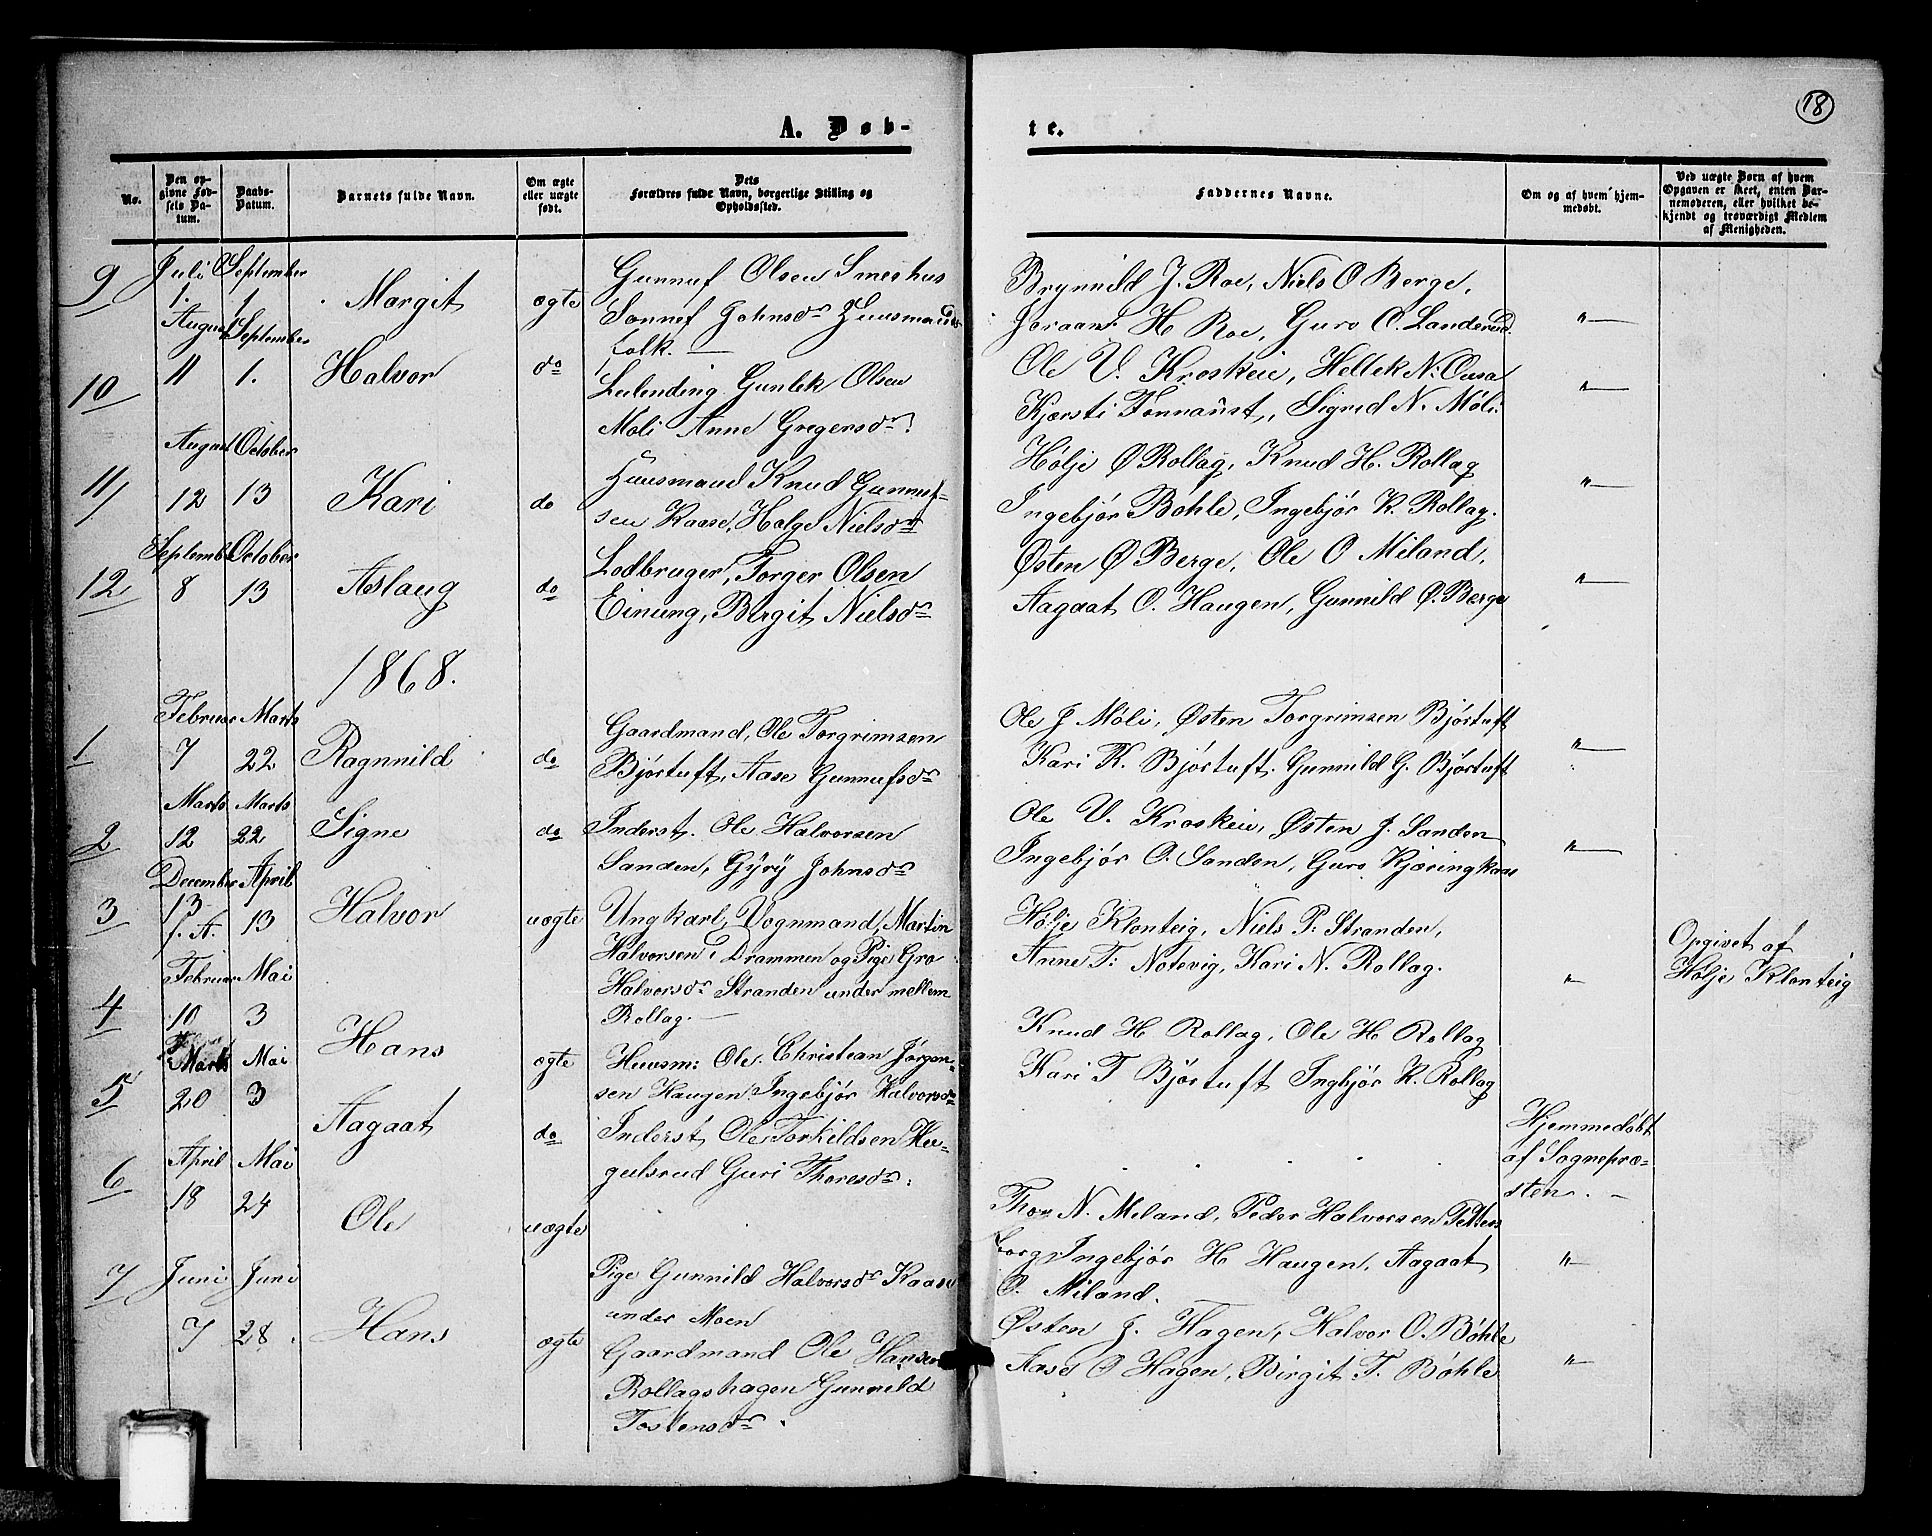 18
A. Døb-
te.
No.
Den op-
givne Fød-
sels Da-
tum.
Daabs-
Datum.
Barnets fulde Navn.
Om ægte
eller uægte
født.
Dets
Forældres fulde Navn, borgerlige Stilling og
Opholdssted.
Faddernes Navne.
Om og af hvem hjem-
medøbt.
Ved uægte Børn af hvem
Opgaven er skeet, enten Bar-
nemoderen, eller hvilket be-
kjendt og troværdigt Medlem
af Menigheden.
9 Juli 1. September 1. Margit ægte
Gunnuf Olsen Smeshus
Sønnef Johnsdr Huusmands
folk. —
Brynnild J. Roe, Niels O Berge,
Joraan H Roe, Guro O. Landerud
"—
10 August 11 September 1. Halvor do
Leilending Gunlek Olsen
Møli Anne Gregersdr.
Ole V. Kroskeie, Hellek N.
Kjersti Fonnaust, Sigrid N. Møli
"—
11 August 12 October 13 Kari do
Huusmand Knud Gunnuf-
sen Kaase, Helge Nielsdr
Hølje Ø Rollag, Knud H. Rollag
Ingebjør Bøhle, Ingebjør K. Rollag.
"—
12 September 8 October 13 Aslaug do
Lodbruger, Torger Olsen
Einung, Birgit Nielsdr
Østen Ø Berge, Ole O Miland,
Aagaat O. Haugen, Gunnild Ø. Berge
"—
1868.
1 Februar 7 Marts 22 Ragnnild do
Gaardmand, Ole Torgrimsen
Bjørtuft, Aase Gunnufsdr
Ole J Møli, Østen Torgrimsen Bjørtuft
Kari K. Bjørtuft. Gunnild G. Bjørtuft
"—
2 Marts 12 Marts 22 Signe do
Inderst. Ole Halvorsen
Sanden, Gyry Johnsdr
Ole V. Kroskeie, Østen J. Sanden
Ingebjør O. Sanden, Guro Kjæringkaas
"—
3 December 13 f. A. April 13 Halvor uægte
Ungkarl, Vognmand, Martin
Halvorsen i Drammen og Pige Gro
Halvorsdr Stranden under mellem
Rollag. —
Hølje Klonteig, Niels P. Stranden,
Anne T: Notevig, Kari N. Rollag.
"
Opgivet af
Hølje Klonteig
4 Februar 10 Mai 3 Hans ægte
Huusm: Ole Christian Jørgen-
sen Haugen Ingebjør Halvorsdr
Knud H Rollag, Ole H Rollag
Kari T Bjørtuft Ingbjør K. Rollag
5 Marts 20 Mai 3 Aagaat do
Inderst, Ole Torkildsen He-
gulsrud Guri Thoresdr.
Hjemmedøbt
af Sognepræ-
sten. —
6 April 18 Mai 24 Ole uægte
Pige Gunnild Halvorsdr Kaase
under Moen
Thor N. Miland, Peder Halvorsen Petters
borg, Ingebjør H Haugen, Aagaat
O. Miland.
"—
7 Juni 7 Juni 28. Hans ægte
Gaardmand Ole Hansen
Rollagshagen Gunnild
Tostensdr.
Østen J. Hagen, Halvor O. Bøhle
Aase O Hagen, Birgit T. Bøhle
"—